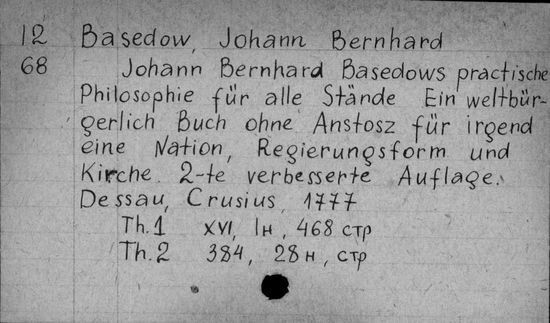 12 Basedow, Johann Bernhard
68 Johann Bernhard Basedows practische
Philosophie für alle Stände Ein weltbür-
gerlich Buch ohne Anstosz für irgend
eine Nation, Regierungsform und
Kirche. 2-te verbesserte Auflage.
Dessau, Crusius, 1777
Th.1 XVI, 1н, 468 стр
Th.2 384, 28н, стр